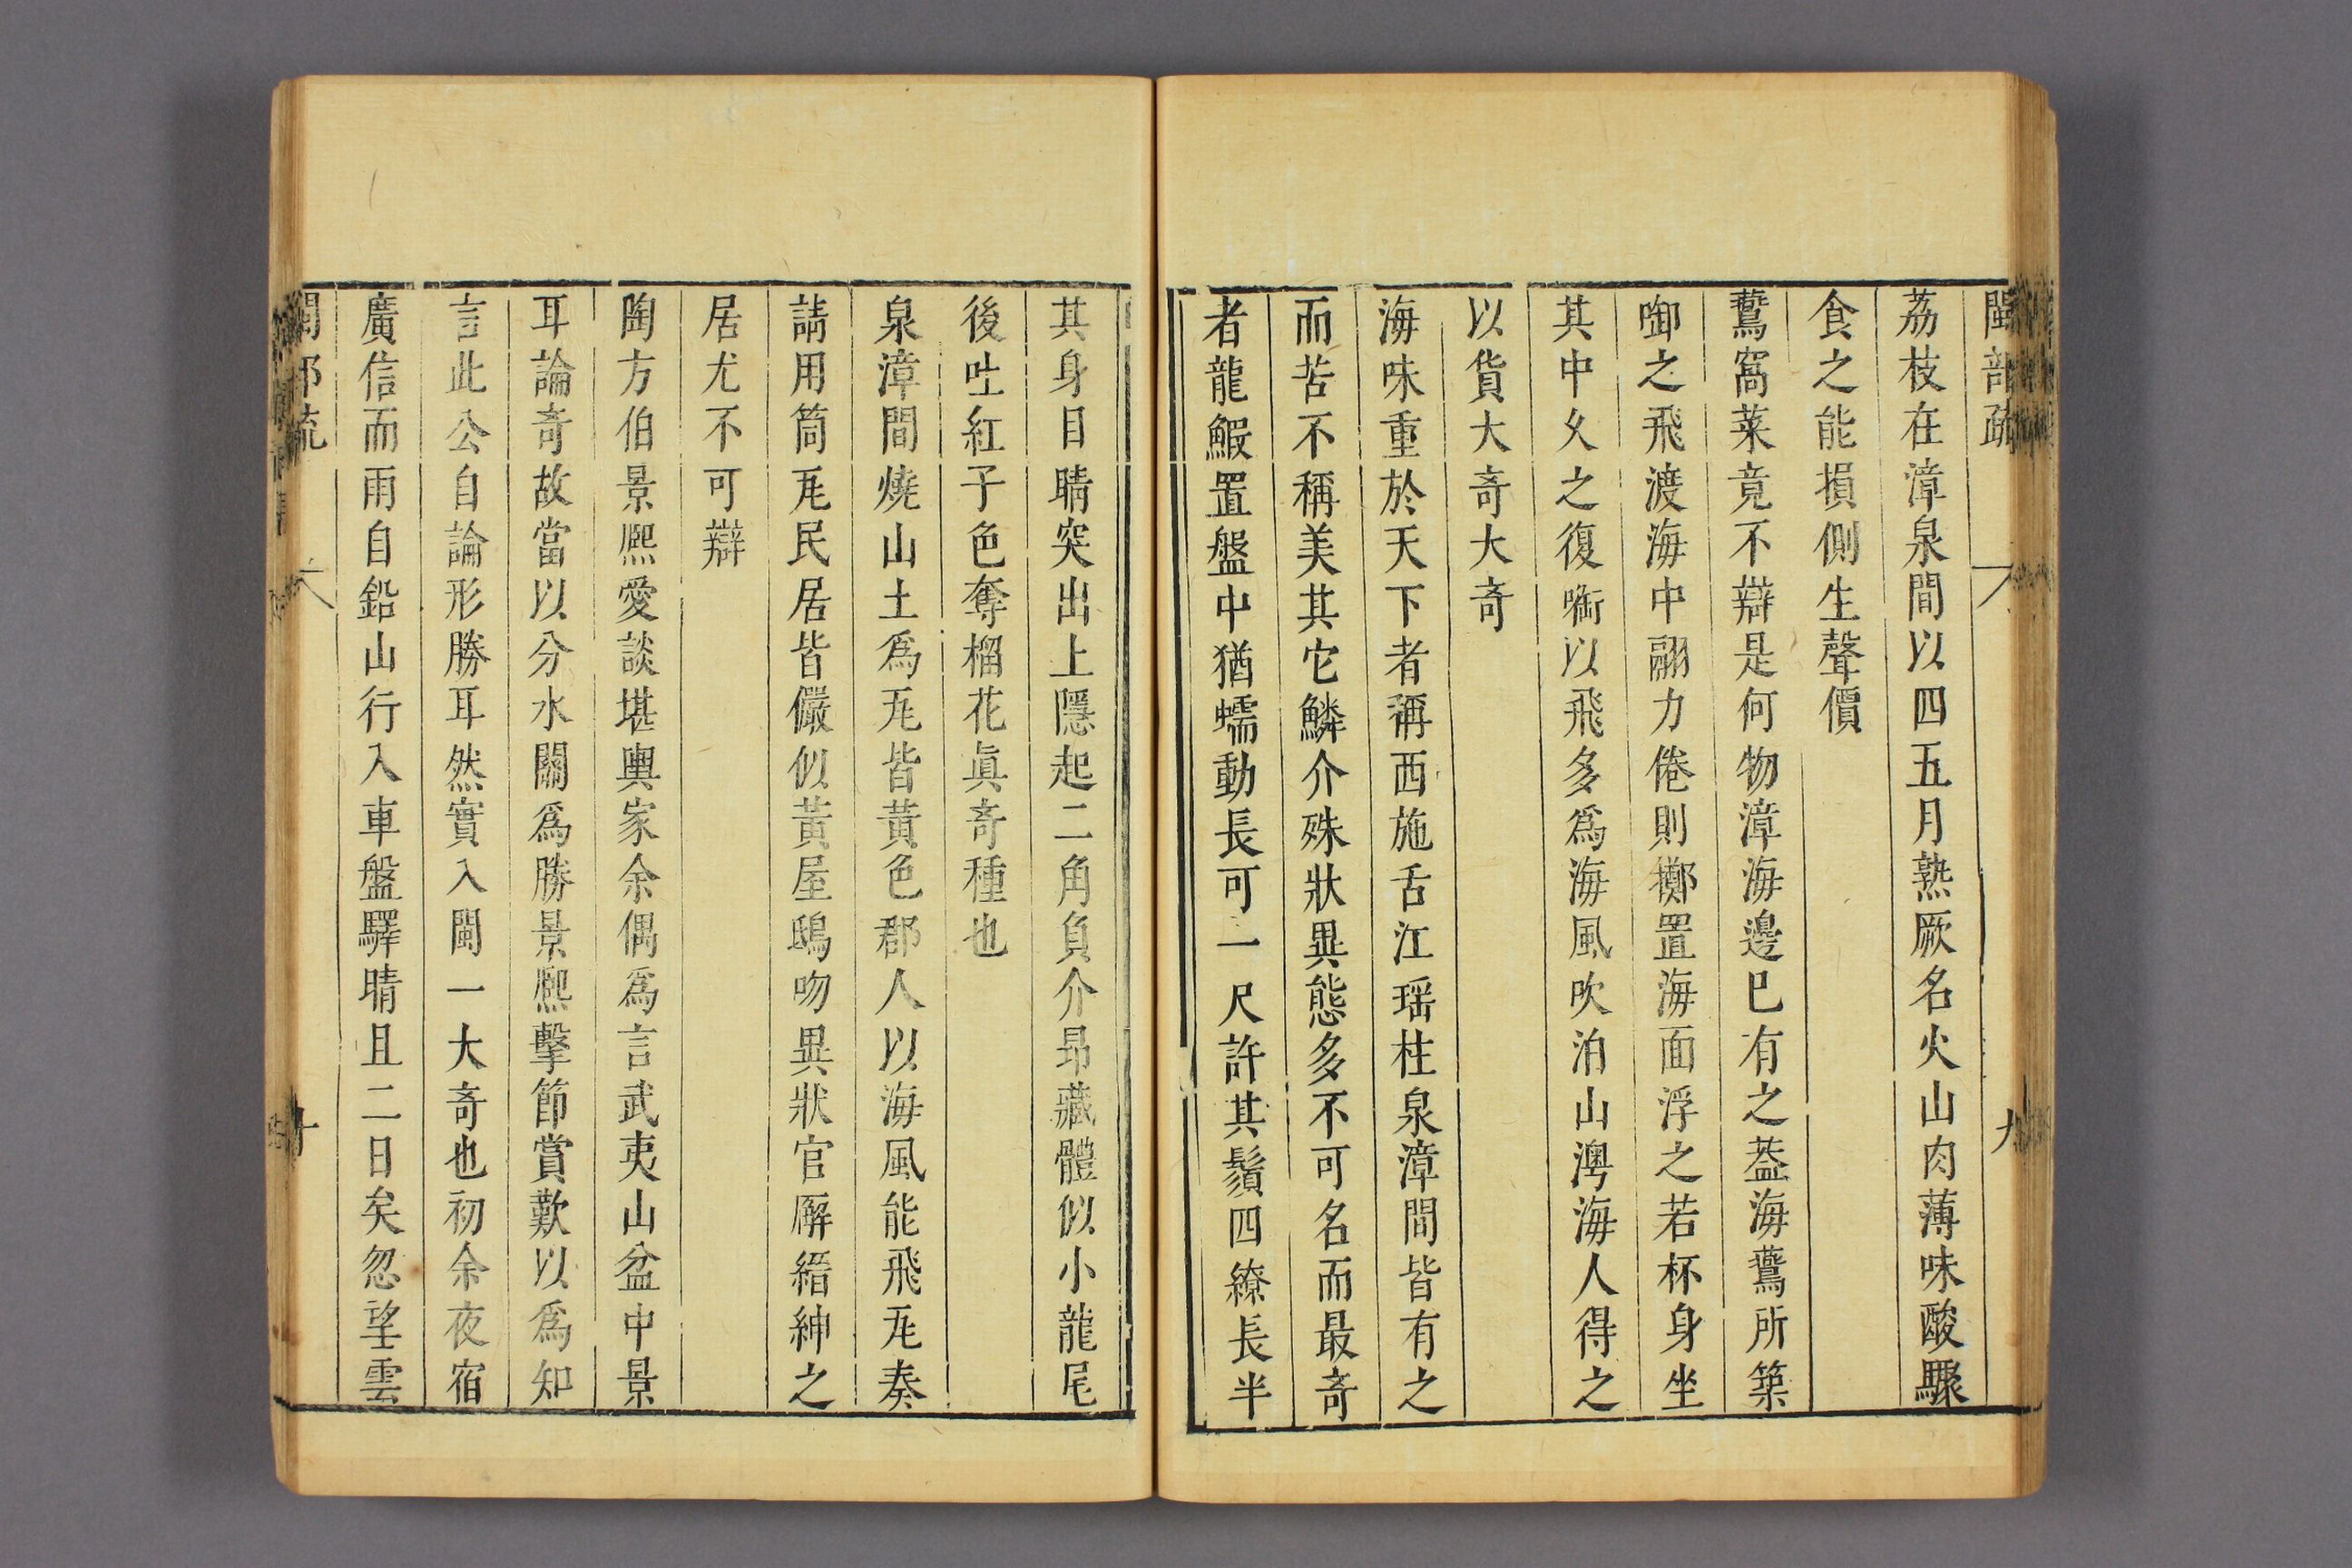 閩部疏
九
荔枝在漳泉間以四五月熟厥名火山肉薄味酸驟
食之能損側生聲價
鷰窩菜竟不辯是何物漳海邊巳有之葢海鷰所築
啣之飛渡海中翮力倦則擲置海面浮之若杯身坐
其中久之復㗸以飛多爲海風吹泊山澳海人得之
以貨大奇大奇
海味重於天下者稱西施舌江瑶柱泉漳間皆有之
而苦不稱美其它鱗介殊狀異態多不可名而最奇
者龍鰕置盤中猶蠕動長可一尺許其鬚四繚長半
其身目睛突出上隱起二角負介昻藏體似小龍尾
後吐紅子色奪榴花眞奇種也
泉漳間燒山土爲瓦皆黄色郡人以海風能飛瓦奏
請用筒瓦民居皆儼似黃屋鴟吻異狀官廨縉紳之
居尤不可辯
陶方伯景熈愛談堪輿家余偶爲言武夷山盆中景
耳論奇故當以分水關爲勝景熈擊節賞歎以爲知
言此公自論形勝耳然實入閩一大奇也初余夜宿
廣信而雨自鉛山行入車盤驛晴且二日矣忽望雲
閩部疏
十